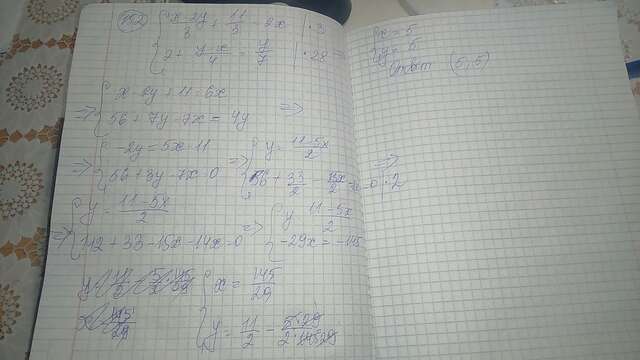 192 { x-2y/3 + 11/3 = 2x | · 3
2 + y-x/4 = y/7 | · 28 ⇒
⇒ { x - 2y + 11 = 6x
56 + 7y - 7x = 4y ⇒
⇒ { -2y = 5x - 11
56 + 3y - 7x = 0
⇒ { y = 11-5x/2
56 + 33/2 - 15x/2 - 7x = 0 | · 2 ⇒
⇒ { y = 11-5x/2
112 + 33 - 15x - 14x = 0
⇒ { y = 11-5x/2
-29x = -145
{ x = 145/29
y = 11/2 -
{ x = 5
y = 5
Ответ (5; 5)